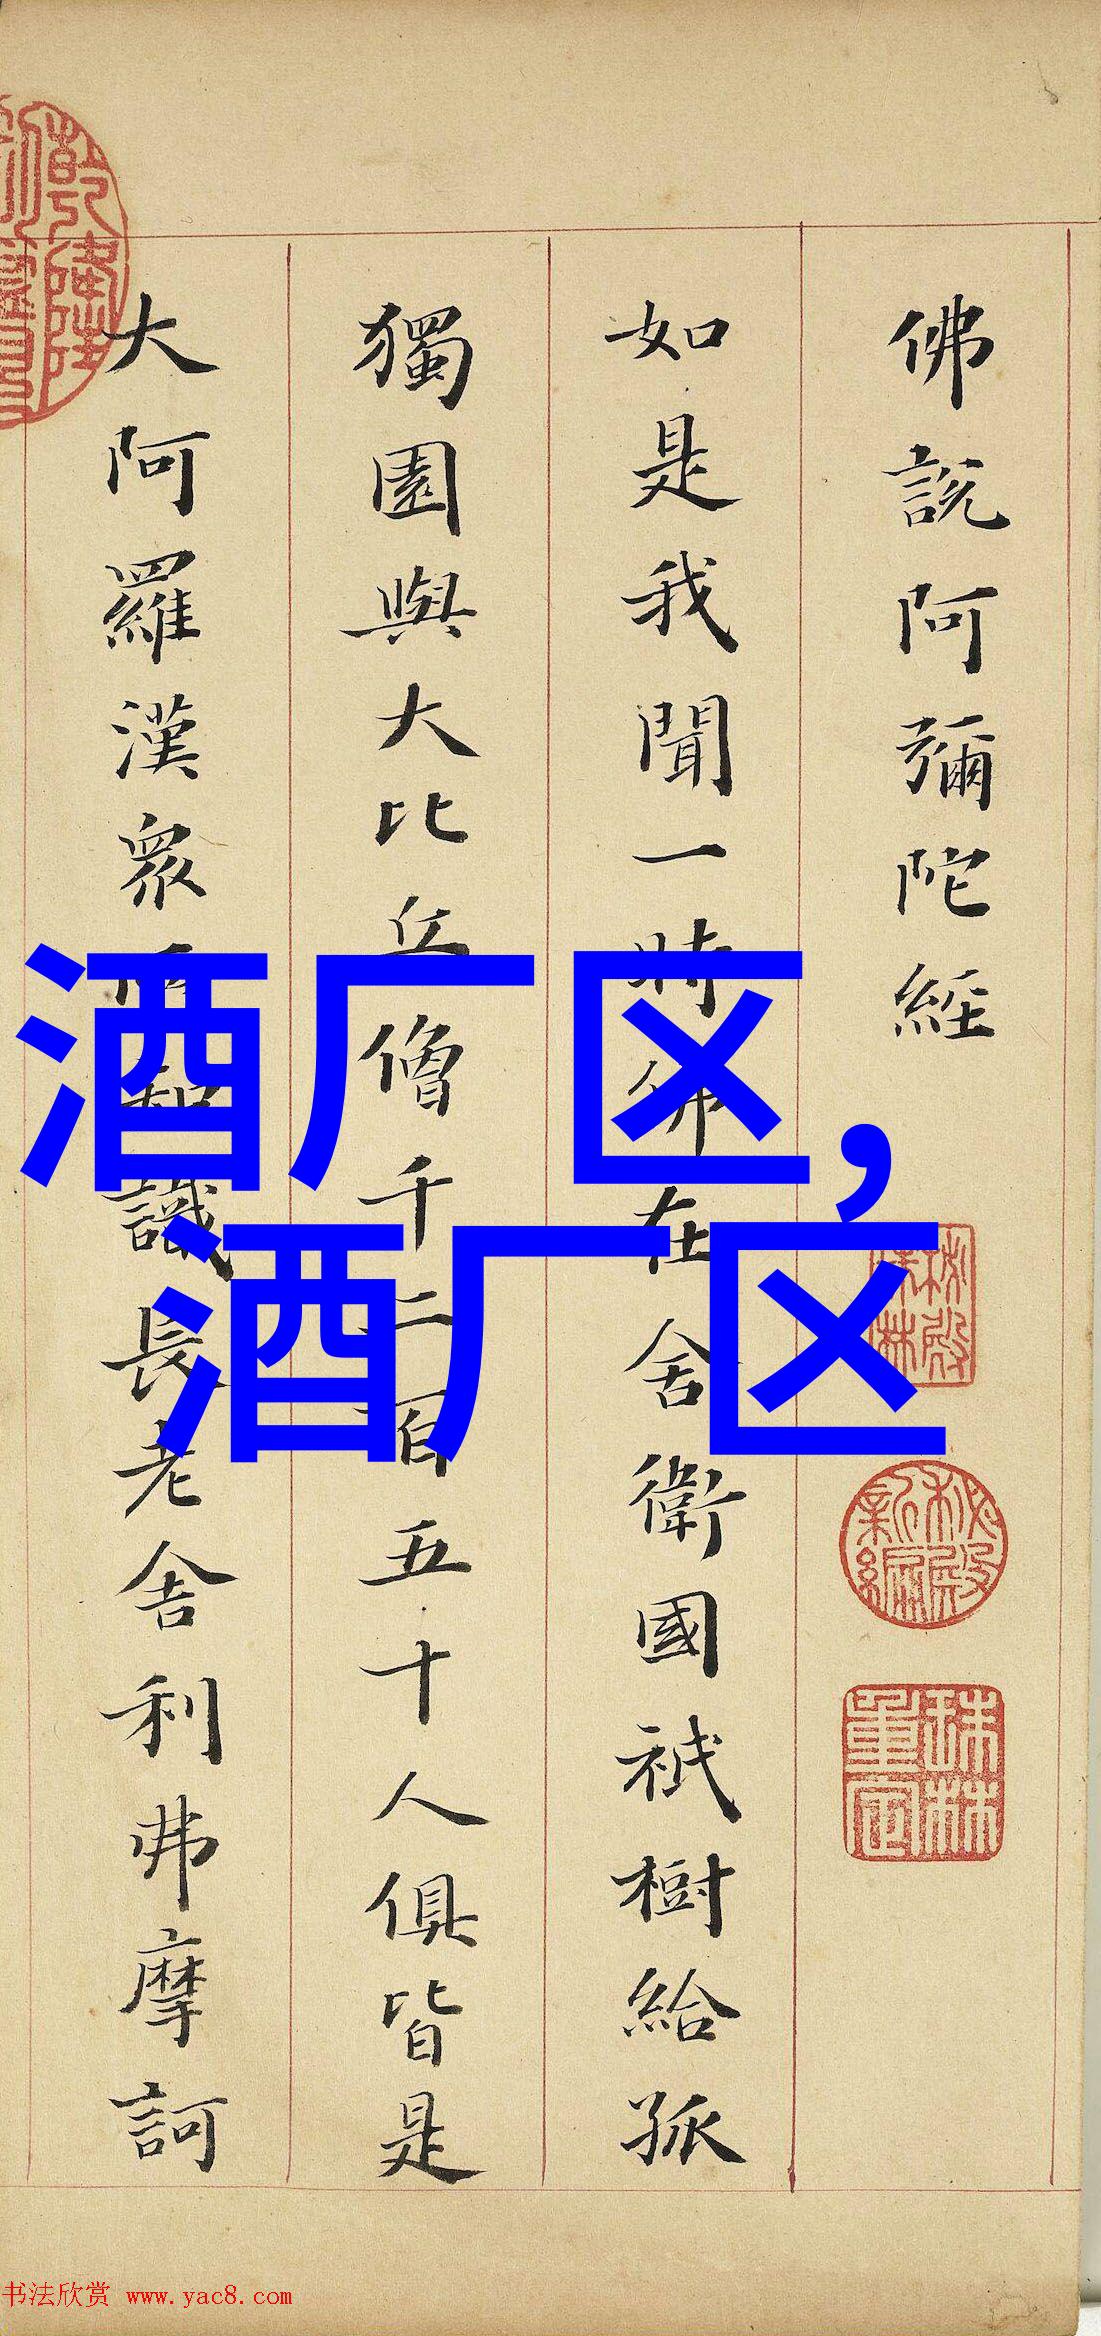 佛說阿彌陀經
如是我聞一時佛在舍衛國祇樹給孤
獨園與大比丘僧千二百五十人俱皆是
大阿羅漢眾所知識長老舍利弗摩訶
酒厂区,
酒厂区
乾隆
秘殿珠林
秘殿新編
珠林重定
书法欣赏 www.yac8.com